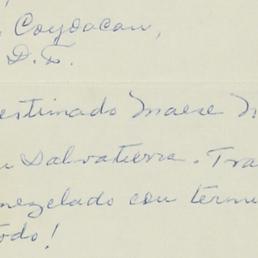 Coyoacan,
D. F.
estimado Maese M
u Salvatierra. Tra
mezclado con térmi
todo!